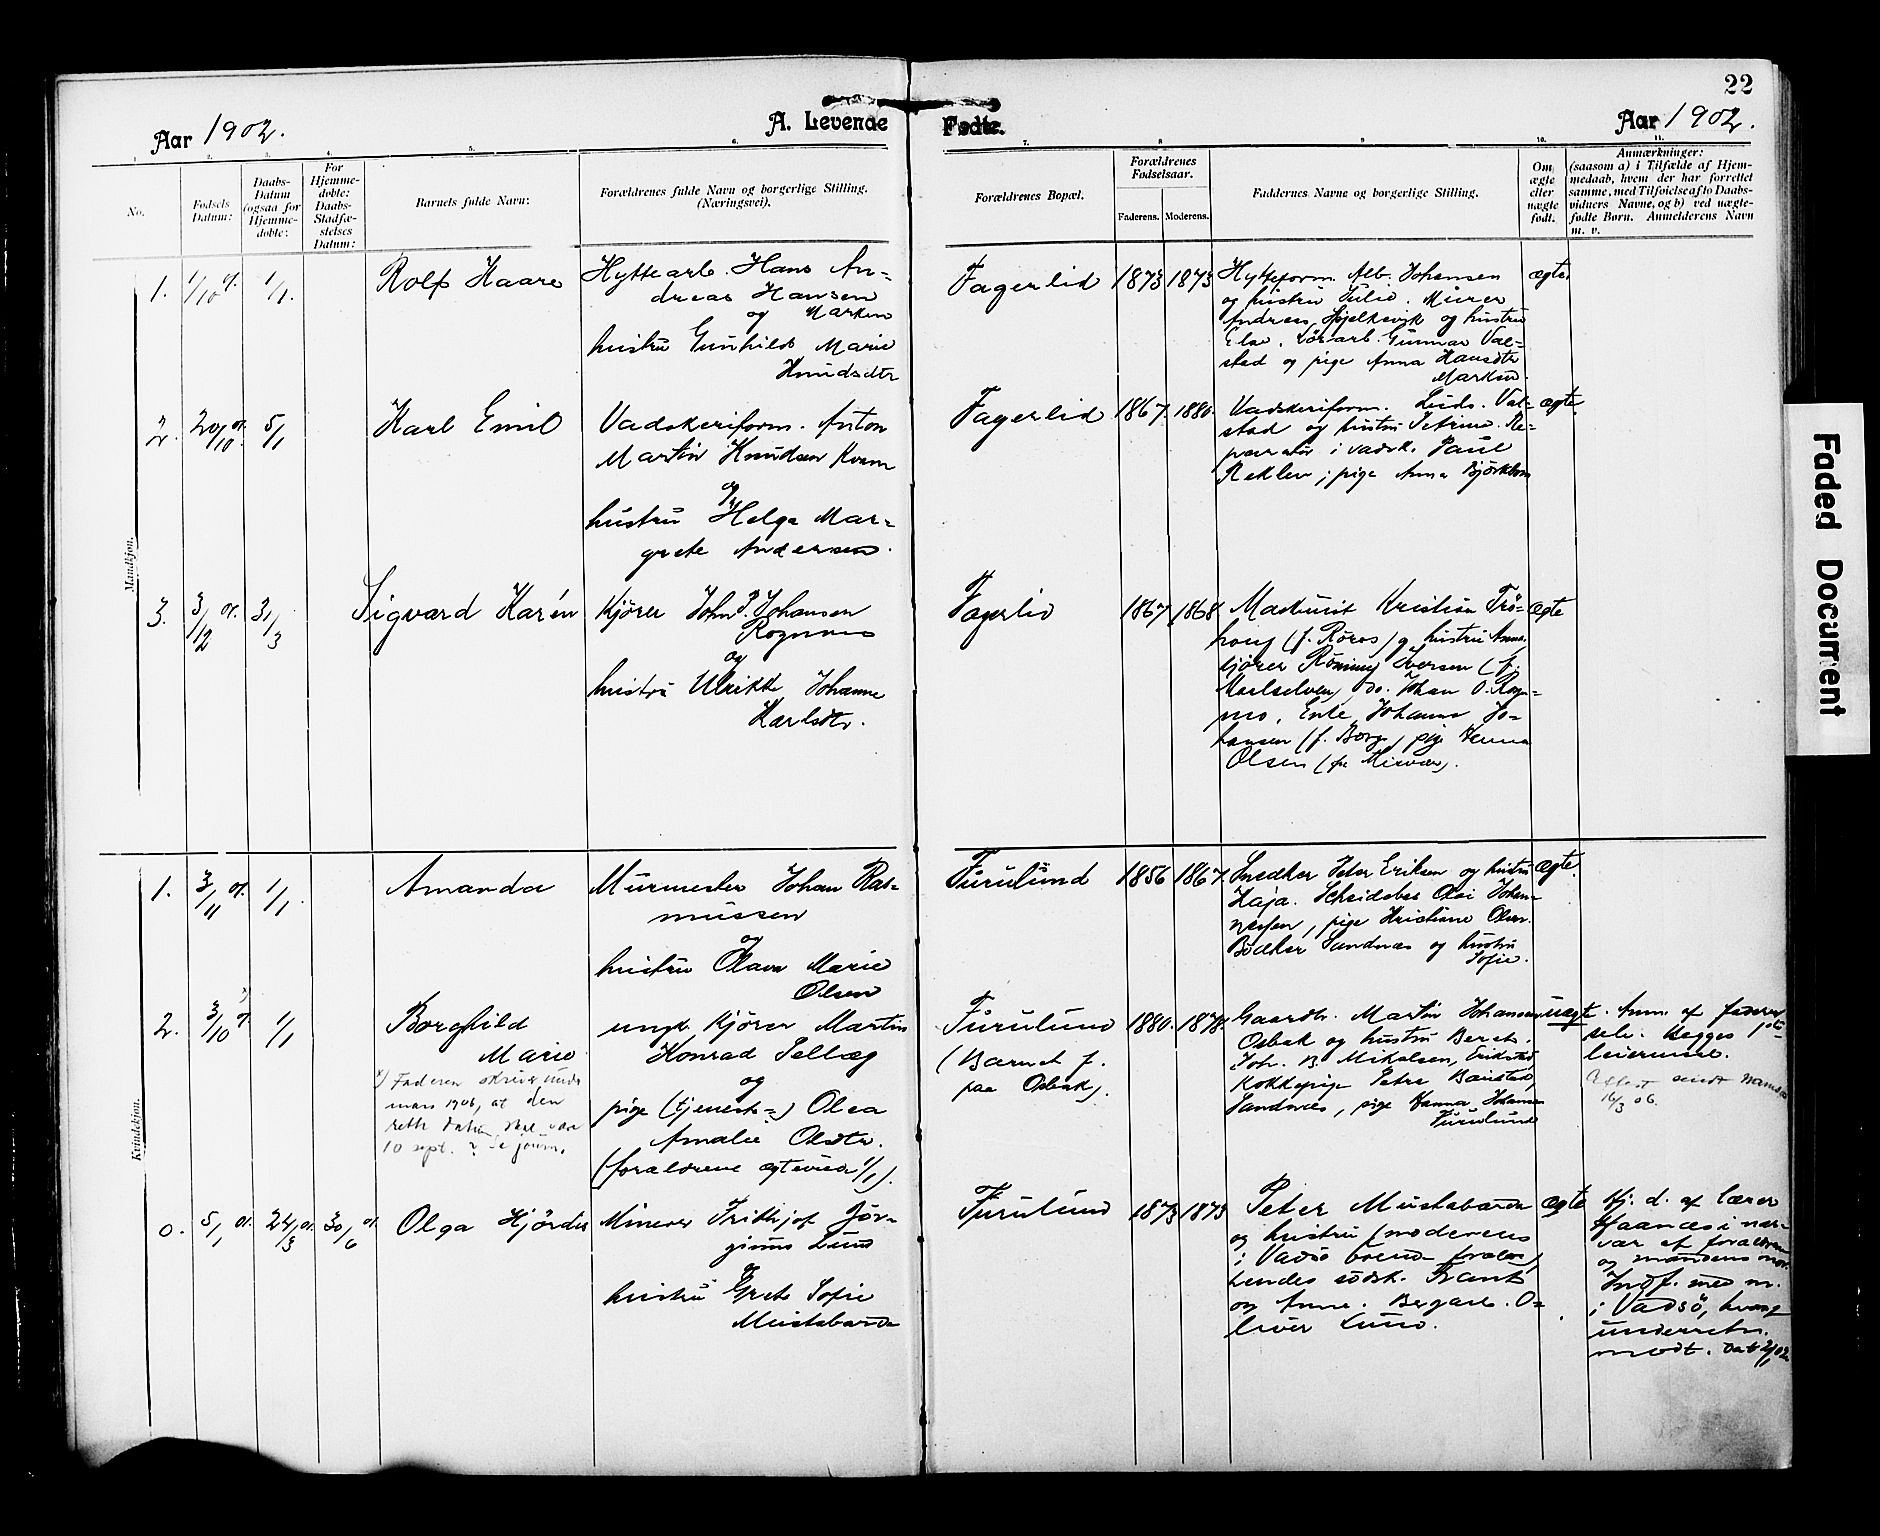 22
Aar 1902.
A. Levende
Fødte.
Aar 1902.
1.
2.
3.
4.
5.
6.
7.
8
9
10.
11.
No.
Fødsels
Datum:
Daabs-
Datum
(ogsaa for
Hjemme-
døbte:
For
Hjemme-
døbte:
Daabs-
Stadfæ-
stelses
Datum:
Barnets fulde Navn:
Forældrenes fulde Navn og borgerlige Stilling.
(Næringsvei).
Forældrenes Bopæl.
Forældrenes
Fødselsaar.
Faderens.
Moderens.
Faddernes Navne og borgerlige Stilling.
Om
ægte
eller
uægte
født.
Anmærkninger:
(saasom a) i Tilfælde af Hjem-
medaab, hvem der har forrettet
samme, med Tilføielse af to Daabs-
vidners Navne, og b) ved uægte-
fødte Børn. Anmelderens Navn
m. v.
Mandkjøn.
1.
1/10 01.
1/1.
Rolf Kaare
Hyttearb. Hans An-
dreas Hansen
og Marken
hustru Gunhild Marie
Knudsdtr
Fagerlid
1873
1873
Hytteform. Alb. Johansen
og hustru Julie. Murer
Andreas Hjelkevik og hustru
Else. Gunnar Val-
stad og pige Anna Hansdtr
Marken.
ægte
2.
20/10 01.
5/1
Karl Emil
Vadskeriform. Anton
Martin Knudsen Kvam
og
hustru Helga Mar-
grete Andersen.
Fagerlid
1867.
1880.
Vadskeriform. Ludv. Val-
stad og hustru Petrine. Re-
paratør i vadsk. Paul
Reklev; pige Anna Björkbom
ægte.
3.
3/12 01.
31/3
Sigvard Karén
Kjörer John P. Johansen
Rognmo
og
hustru Ulrikke Johanne
Karlsdtr.
Fagerlid
1867.
1868
Maskinist Kristian Trö-
houg (f. Röros) og hustru Anna,
kjörer Rönning Iversen (f.
Maalselven) do. Johan O. Rogn-
mo, Enke Johanna Jo-
hansen (f. Borge), pige Hanna
Olsen (fr Misvær).
ægte
Kvindekjøn.
1.
3/11 01.
1/1.
Amanda
Murmester Johan Ras-
mussen
og
hustru Olava Marie
Olsen
Furulund
1856
1867.
Snedker Peter Eriksen og hustru
Kaja. Scheidebas Olai Johan-
nessen, pige Kristiane Olsen.
Bödker Sandnæs og hustru
Sofie.
ægte.
2.
3/10 x)
1/1
Borghild
Marie
x) Faderen skriver under
mars 1906, at den
rette datum skal være
10 sept. Se journ.
ungk. Kjörer Martin
Konrad Selbæg
og
pige (tjenest-) Olea
Amalie Olsdtr.
(forældrene ægteviede 1/1).
Furulund
(Barnet f.
paa Osbak).
1880.
1878.
Gaardbr. Martin Johansen
Osbak og hustru Beret.
Joh. B. Mikalsen,
Kokkepige Petra
Sandnæs, pige Hanna Johansen
Furulund
uægte.
Anm. af faderen
selv. Begges 1ste
leiermaal.
Attest sendt
16/3 06.
0.
5/1 01.
24/3 01.
30/6 01.
Olga Hjördis
Minerer Frithjof Jör-
ginus Lund
og
hustru Grete Sofie
Mustabarda
Furulund
1873
1873
Peter Mustabarda
og hustru (moderens
i Vadsö boende forældre)
hendes södsk. Frantz
og Anne. Bergarb. O-
liver Lund.
ægte
Hj. d. af lærer
Haanæs i nær-
vær af forældrene
og mandens mor.
Indf. med n.
i Vadsö, hvorom
underretn.
modt. dat 2/1 02.
Faded Document